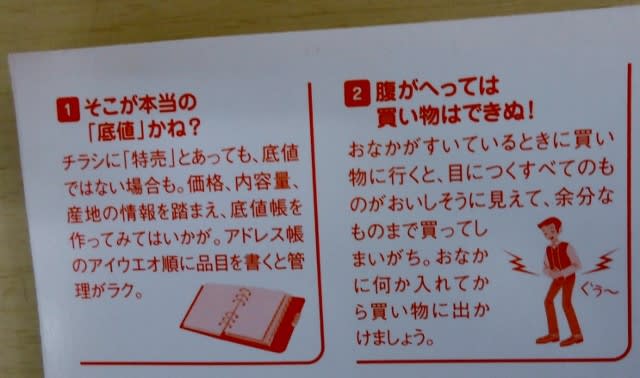 1 そこが本当の
「底値」かね？
チラシに「特売」とあっても、底値
ではない場合も。価格、内容量、
産地の情報を踏まえ、底値帳を
作ってみてはいかが。アドレス帳
のアイウエオ順に品目を書くと管
理がラク。
2 腹がへっては
買い物はできぬ！
おなかがすいているときに買い
物に行くと、目につくすべてのも
のがおいしそうに見えて、余分な
ものまで買ってし
まいがち。おなか
に何か入れてか
ら買い物に出か
けましょう。
ぐぅ〜